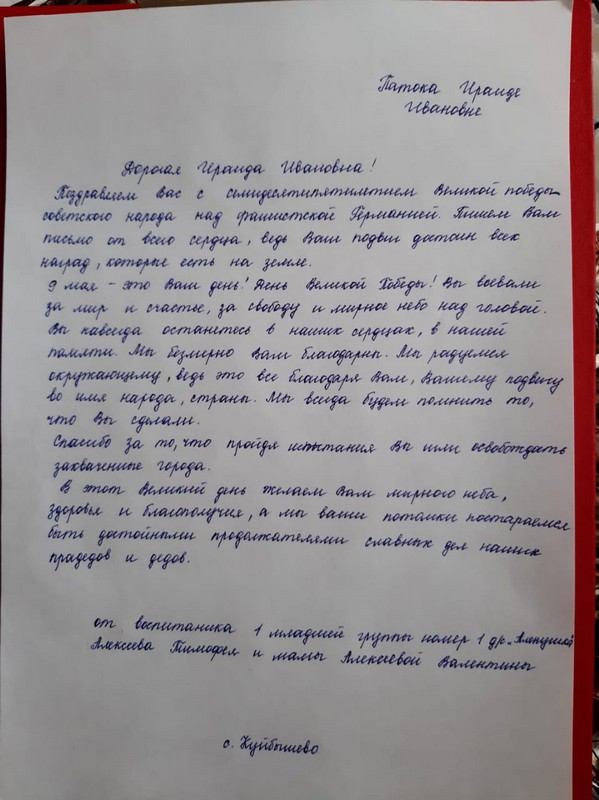 Патока Ираиде
Ивановне
Дорогая Ираида Ивановна!
Поздравляем Вас с семидесятипятилетием Великой победы
советского народа над фашистской Германией. Пишем Вам
письмо от всего сердца, ведь Ваш подвиг достоин всех
наград, которые есть на земле.
9 мая – это Ваш день! День Великой Победы! Вы воевали
за мир и счастье, за свободу и мирное небо над головой.
Вы навсегда останетесь в наших сердцах, в нашей
памяти. Мы безмерно Вам благодарны. Мы радуемся
окружающему, ведь это все благодаря Вам, Вашему подвигу
во имя народа, страны. Мы всегда будем помнить то,
что Вы сделали.
Спасибо за то, что пройдя испытания Вы шли освобождать
захваченные города.
В этот Великий день желаем Вам мирного неба,
здоровья и благополучия, а мы ваши потомки постараемся
быть достойными продолжателями славных дел наших
прадедов и дедов.
от воспитаника 1 младшей группы номер 1 д/с „Аленушка"
Алексеева Тимофея и мамы Алексеевой Валентины
с. Куйбышево